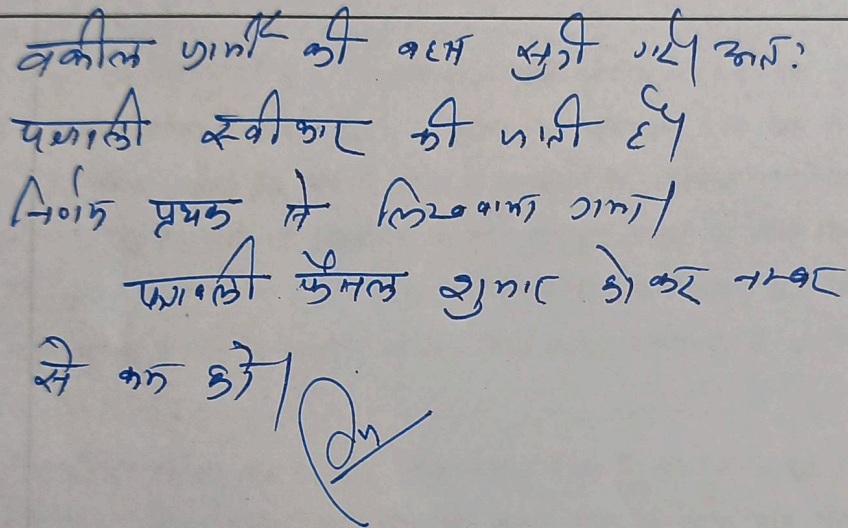 वकील प्रार्थी की बहस सुनी गई। अतः
पत्रावली स्वीकार की जाती है।
निर्णय पृथक से लिखवाया गया।
पत्रावली फैसल शुमार होकर नम्बर
से कम हो।